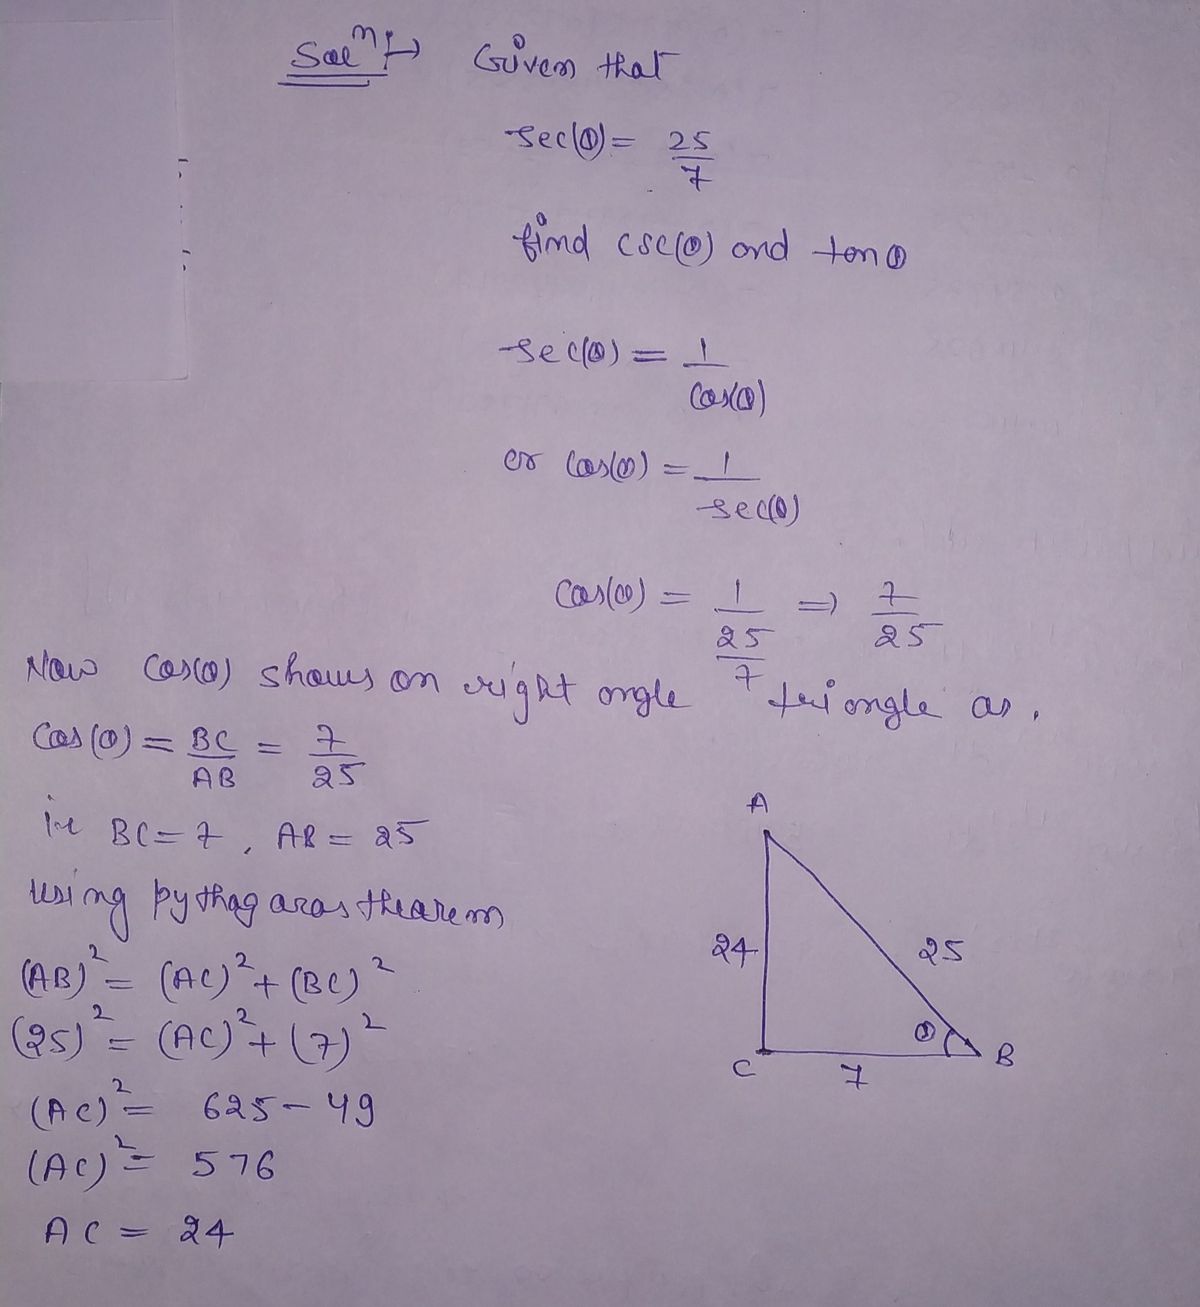 Solⁿ:→ Given that
sec(θ) = 25/7
find csc(θ) and tanθ
sec(θ) = 1/cos(θ)
or cos(θ) = 1/sec(θ)
cos(θ) = 1/(25/7) => 7/25
Now cos(θ) shows on right angle triangle as.
cos(θ) = BC/AB = 7/25
ie BC = 7, AB = 25
using pythagoras thearem
(AB)² = (AC)² + (BC)²
(25)² = (AC)² + (7)²
(AC)² = 625 - 49
(AC)² = 576
AC = 24
A
24
25
θ
C
7
B